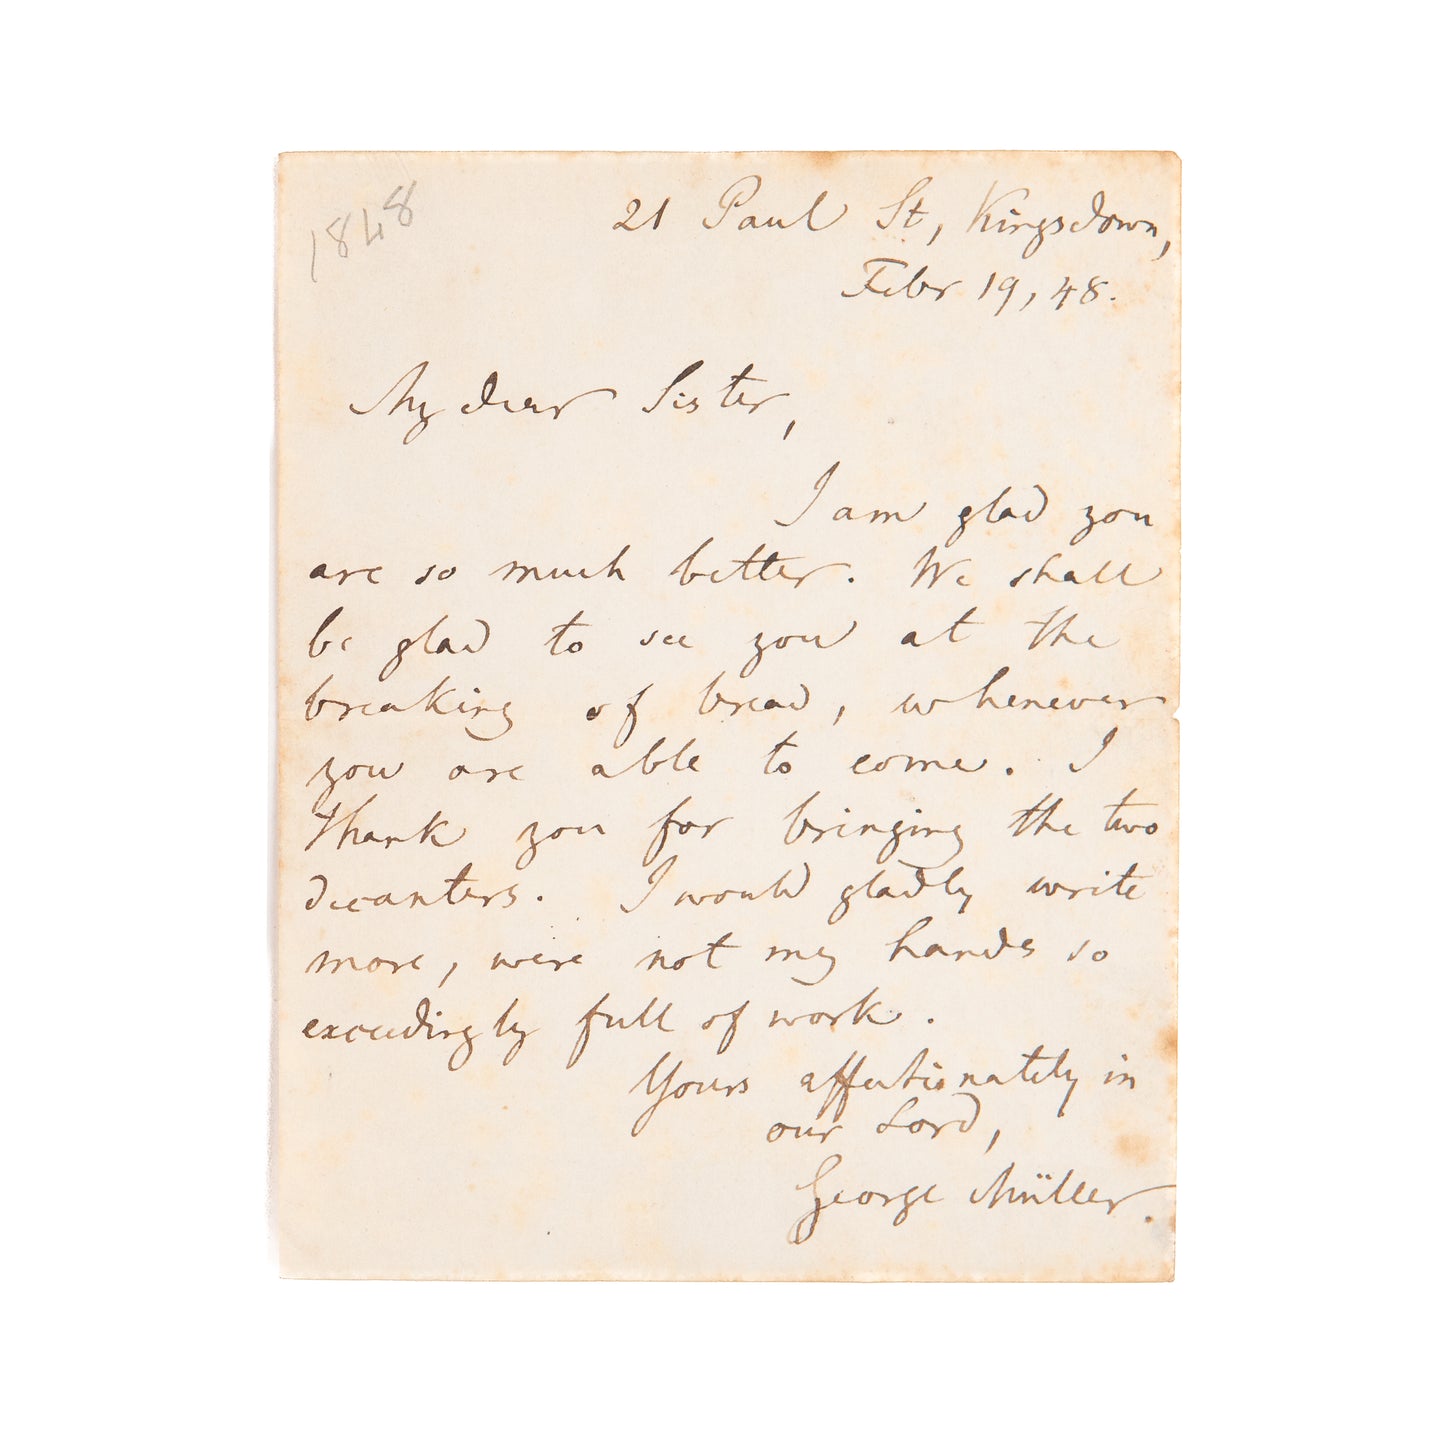 1848
21 Paul St, Kingsdown,
Febr 19, 48.
My dear Sister,
I am glad you
are so much better. We shall
be glad to see you at the
breaking of bread, whenever
you are able to come. I
thank you for bringing the two
decanters. I would gladly write
more, were not my hands so
exceedingly full of work.
Yours affectionately in
our Lord,
George Müller.